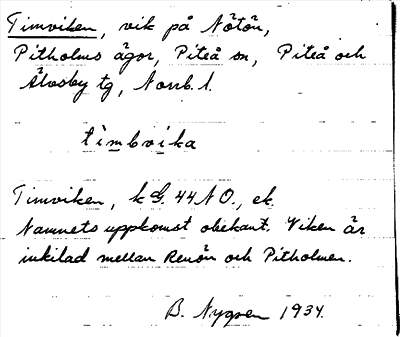 Timviken, vik på Nötön,
Pitholms ägor, Piteå sn, Piteå och
Älvsby tg, Norrb. l.
timbvika
Timviken, k G. 44 NO., ek.
Namnets uppkomst obekant. Viken är
inkilad mellan Renön och Pitholmen.
B. Nygren 1934.